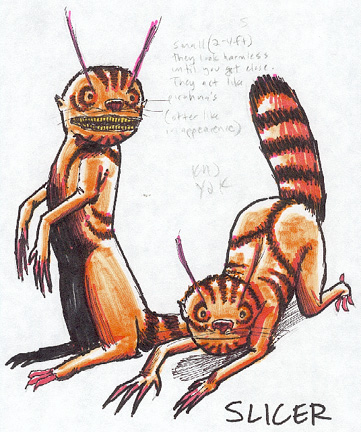 S
small (2-4ft)
They look harmless
until you get close.
They act like
piranha's
(otter like
in appearence)
Y2K
SLICER